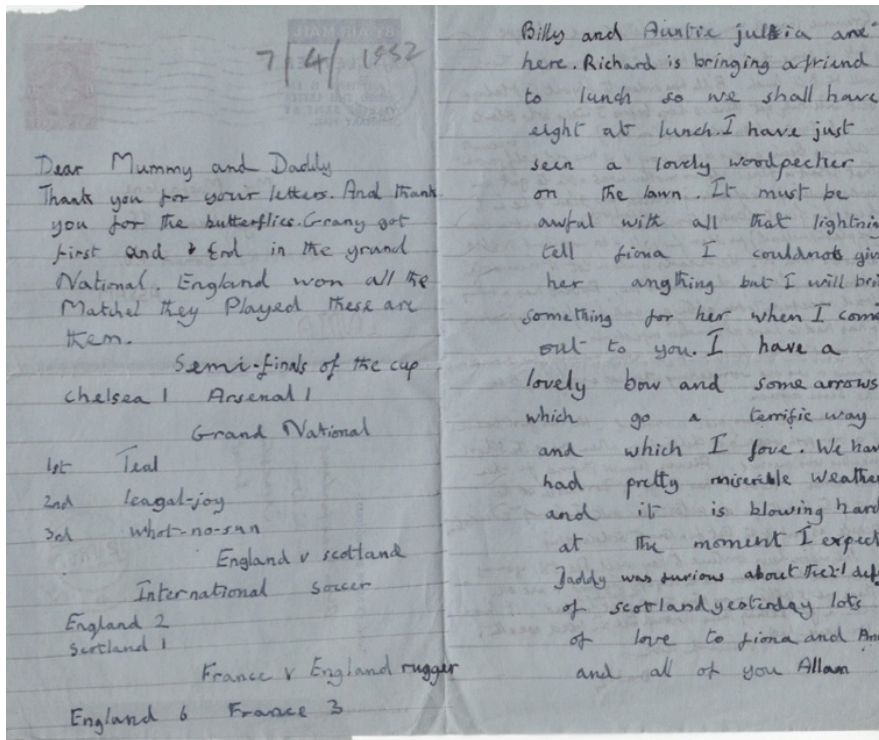 7/4/1952
Dear Mummy and Daddy
Thank you for your letters. And thank
you for the butterflies. Grany got
first and End in the grand
National. England won all the
Matchel they Played these are
them.
Semi-finals of the cup
Chelsea 1 Arsenal 1
Grand National
1st Teal
2nd leagal-joy
3rd whot-no-sun
England v scotland
International soccer
England 2
Scotland 1
France v England rugger
England 6 France 3
Billy and Auntie julia are
here. Richard is bringing a friend
to lunch so we shall have
eight at lunch. I have just
seen a lovely woodpecker
on the lawn. It must be
awful with all that lightnin
tell fiona I couldnot giv
her angthing but I will bri
something for her when I come
out to you. I have a
lovely bow and some arrows
which go a terrific way
and which I love. We hav
had pretty miserible weather
and it is blowing hard
at the moment I expect
Daddy was furious about the 2-1 def
of scotland yeaterday lots
of love to fiona and An
and all of you Allan